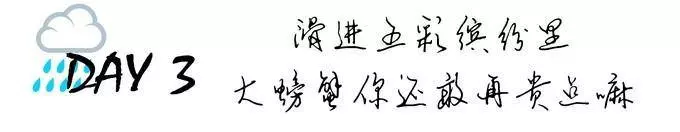 DAY 3
滑进五彩缤纷里
大螃蟹你还敢再贵点嘛